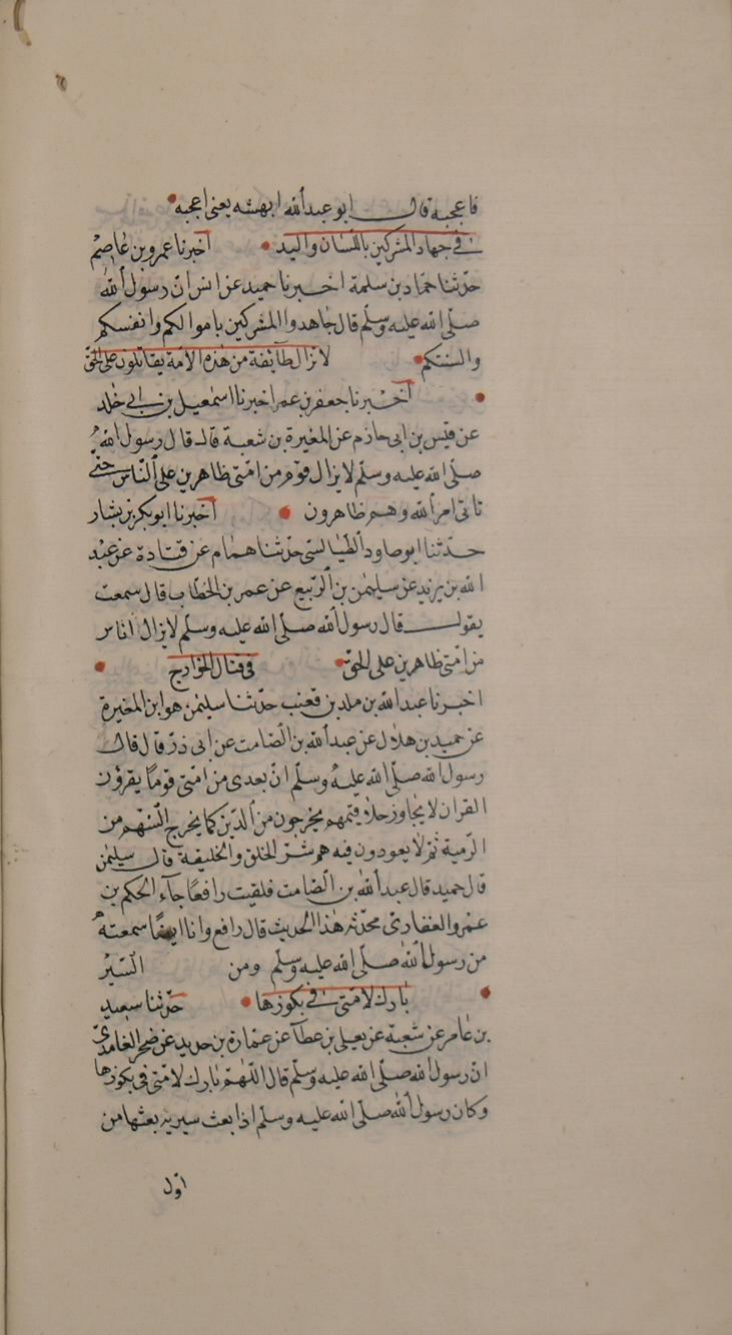 فاعجبه قال ابو عبد الله ابهسه يعني اعجبه
في جهاد المشركين باللسان واليد اخبرنا عمرو بن عاصم
حدّثنا حمّاد بن سلمة اخبرنا حميد عن انس انّ رسول الله
صلّى الله عليه وسلّم قال جاهدوا المشركين باموالكم وانفسكم
والسنتكم لا تزال طآئفة من هذه الامة يقاتلون على الحق
اخبرنا جعفر بن عمر اخبرنا اسمعيل بن ابي خالد
عن قيس بن ابى حازم عن المغيرة بن شعبة قال قال رسول الله
صلّى الله عليه وسلّم لا يزال قوم من امّتى ظاهرين على النّاس حتّى
تاتى امر الله وهم ظاهرون اخبرنا ابو بكر بن بشار
حدّثنا ابو صاود الطيالسى حدّثنا همام عن قتادة عن عبد
الله بن يزيد عن سليمن بن الرّبيع عن عمر بن الخطاب قال سمعت
يقول قال رسول الله صلّى الله عليه وسلّم لا يزال اناس
من امّتى ظاهرين على الحقّ فى قتال الخوارج
اخبرنا عبد الله بن ملد بن قعنب حدّثنا سليمن هو ابن المغيرة
عن حميد بن هلال عن عبد الله بن الصّامت عن ابى ذرّ قال قال
رسول الله صلّى الله عليه وسلّم انّ بعدى من امّتى قوما يقرؤن
القران لا يجاوز حلاقيمهم يخرجون من الدّين كما يخرج السّهم من
الرّمية ثمّ لا يعودون فيه هم شرّ الخلق والخليقة قال سليمن
قال حميد قال عبد الله بن الصّامت فلقيت رافعا جآء الحكم بن
عمرو الغفارى محدّثه هذا الحديث قال رافع وانا ايضا سمعته
من رسول الله صلّى الله عليه وسلّم ومن السّير
بارك لامّتى فى بكورها حدّثنا سعيد
بن عامر عن شعبة عن يعلى بن عطآ عن عمارة بن حديد عن صخر الغامدىّ
انّ رسول الله صلّى الله عليه وسلّم قال اللّهمّ بارك لامّتى فى بكورها
وكان رسول الله صلّى الله عليه وسلّم اذا بعث سيرية بعثها من
اوّل